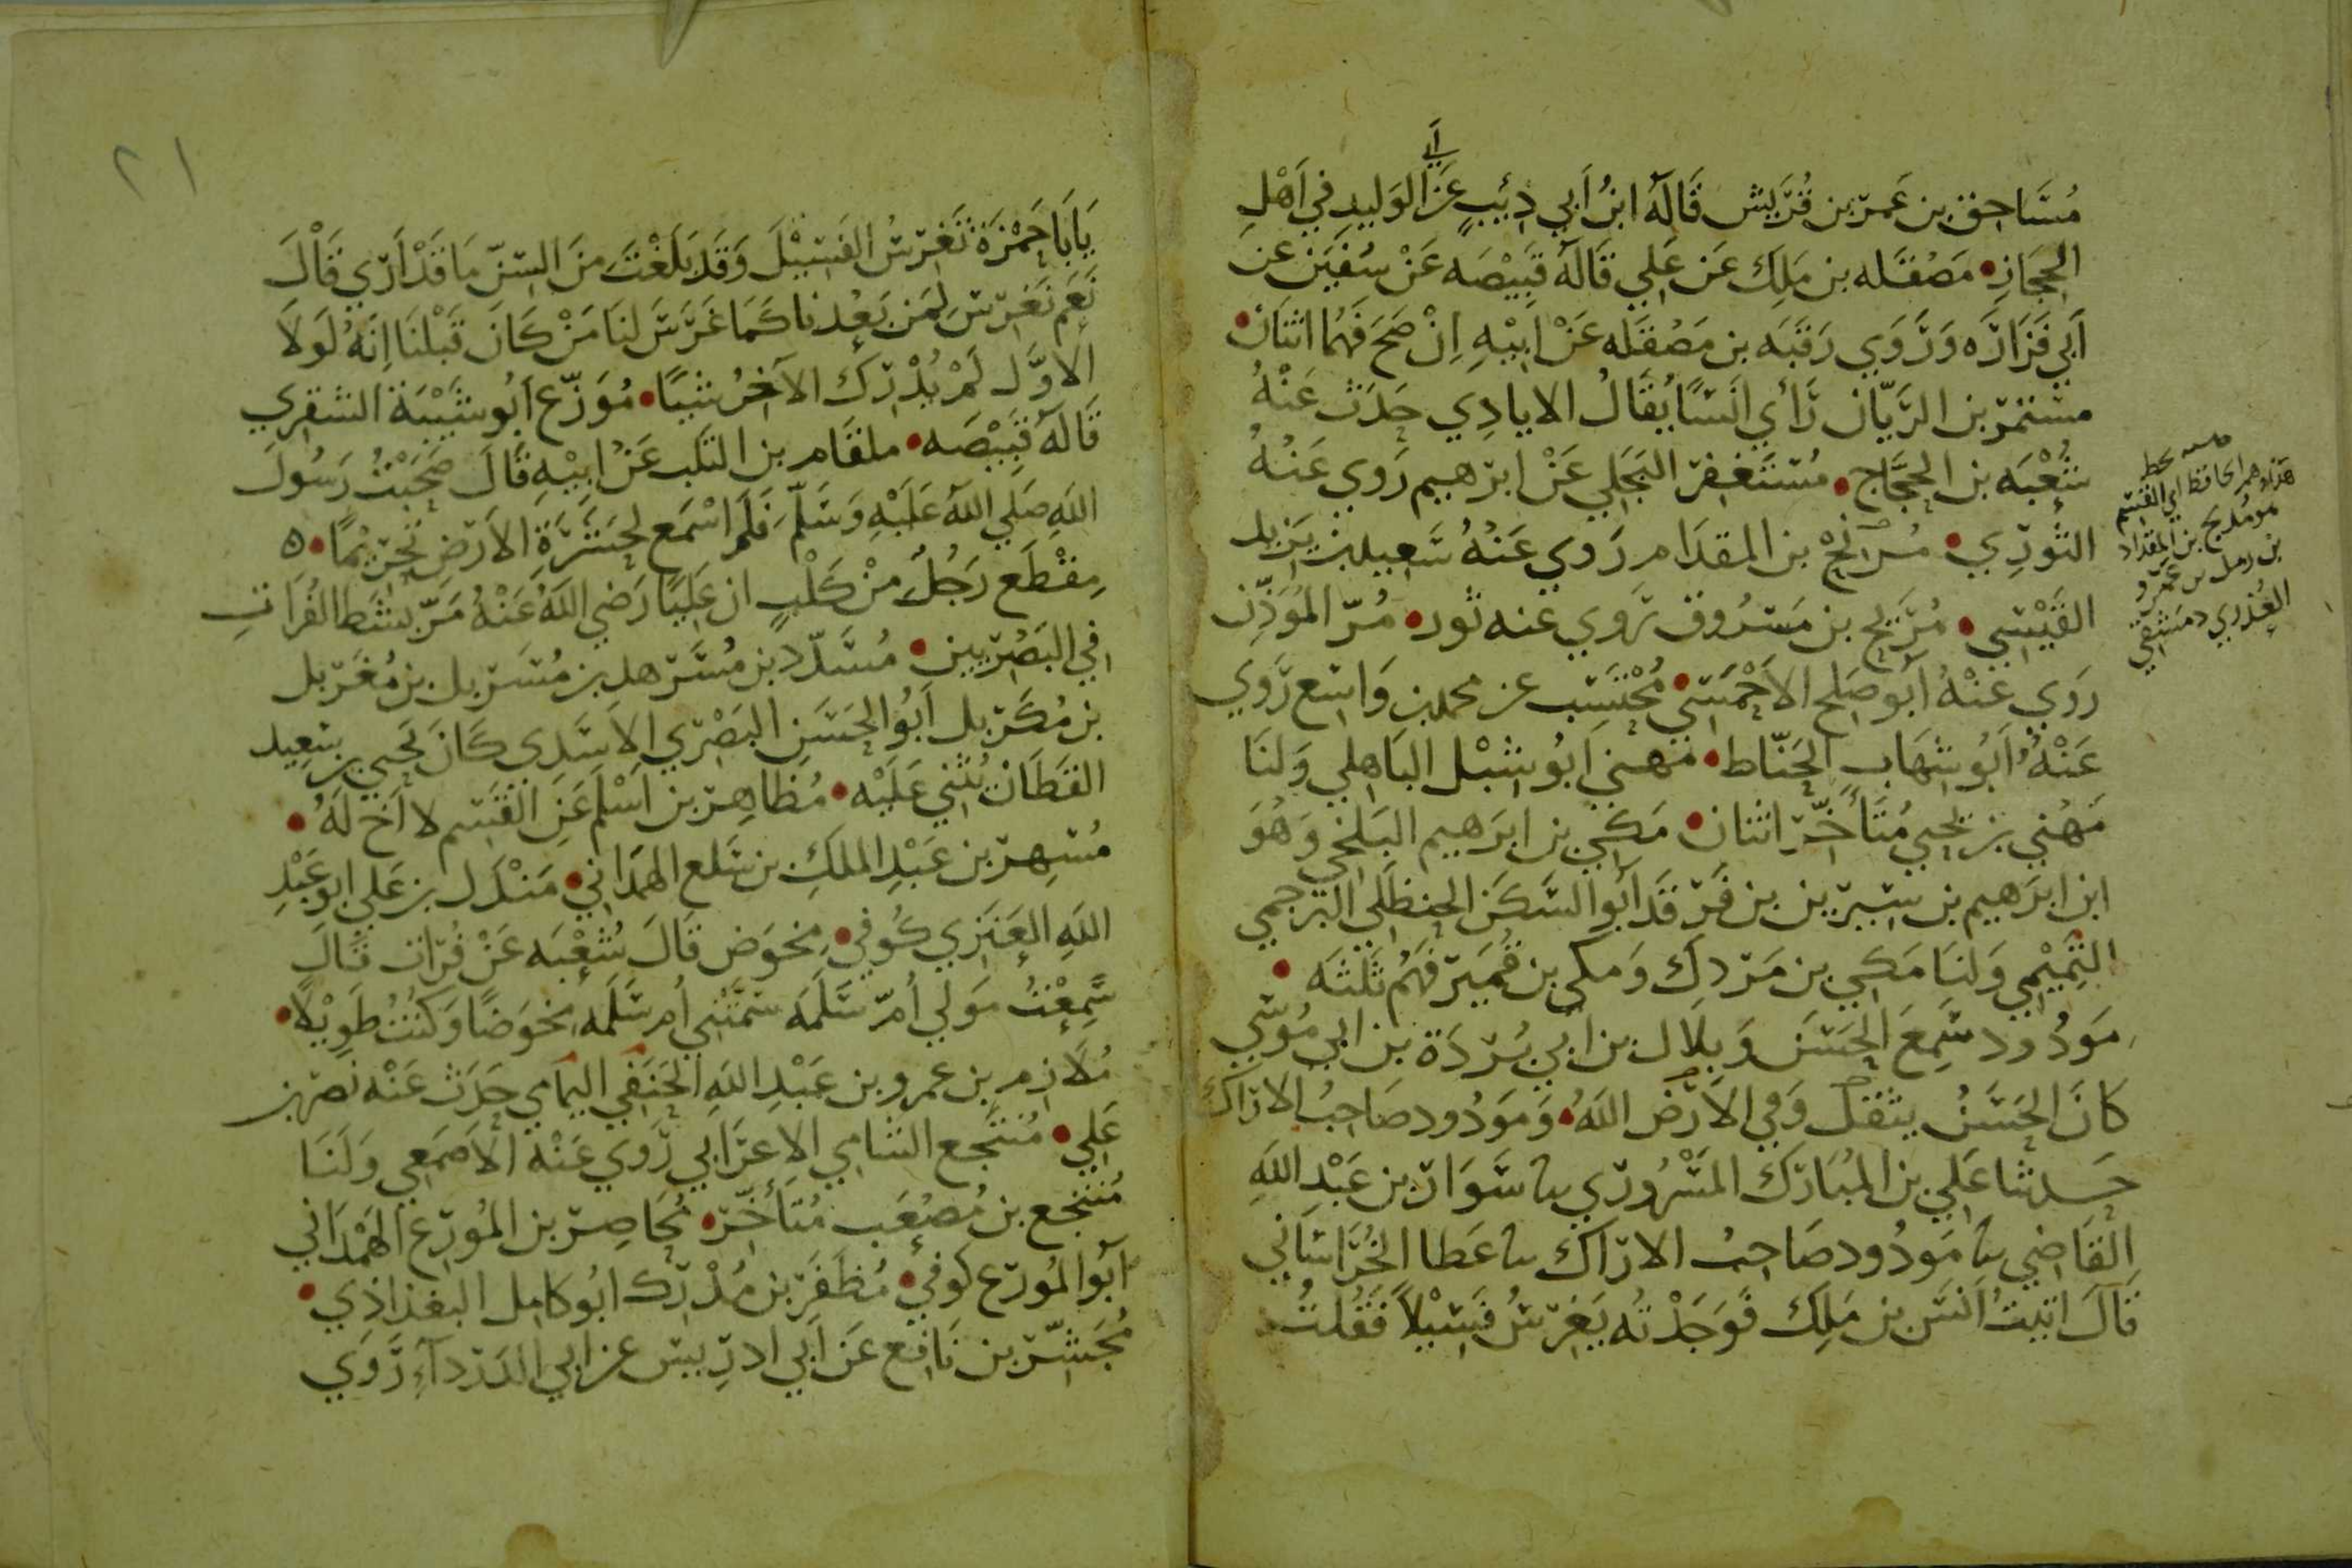 أبي
مُسَاحِق بن عَمر بن قُرَيش قَالَهُ ابنُ أبي ذِئبٍ عَن الوَليدِ في أهْلِ
الحِجَازِ • مَصْقَله بن مَلِك عَن عَلي قَالَهُ قَبِيْصَه عَنْ سُفيَن عَن
أبي فَزَارَه وَرَوي رَقَبَه بن مَصْقَله عَنْ أبِيْهِ اِنْ صَحَ فَهُمَا اثنَان •
مستمر بن الريّان رَأي انَسًا يُقَالُ الايادِي حَدَث عَنْهُ
شُعْبَه بن الحجَّاج • مُسْتَغفِر البَجَلي عَنْ ابرَهيم رَوي عَنْهُ
الثَوري • بن المقدَام رَوي عَنْهُ سَعيد بن يَزيد
القَيْسِي • مُرَيح بن مَسرُوق رَوي عنه ثور • مُرّ المُؤذِّن
رَوي عَنْهُ أبو صَلح الاحْمَسي • مُحْتَسِب عن محمد بن وَاسِع رَوي
عَنْهُ أبُو شِهَابٍ الحَنّاط • مهني أبُو شِبْل البَاهِلي وَلنَا
مُهَني بن يَحيي مُتَأخّر اثنَان • مَكي بن ابرَهيم البَلخي وَهُوَ
ابن ابرَهيم بن بشير بن فَرقَد أبُو السَكَن الحنظَلي البُرجمي
التَمِيْمي وَلنَا مَكي بن مَردك وَمكى بن قُمَيَر فَهُم ثَلثَه •
مَوْدُود سَمِعَ الحَسَن وَبلَال بن أبي بُردَة بن أبي مُوسَي
كانَ الحَسَنُ يثقل وَفي الارْض اللهُ • وَمَودُود صَاحِبُ الارَاك
حَدثنا عَلي بن المبَارَك المَسْرُوري نا سَوَار بن عَبْدِ اللهِ
القَاضِي نا مَودُود صَاحِبُ الارَاك نا عَطا الخُرَاسَاني
قَالَ اتَيتُ أنَسَ بن مَلِك فَوَجَدْتُه يَغرِسُ فَسِيْلاً فَقُلتُ
بخط
الحافظ أبي القسم
هو مُدلج بن المِقدَاد
بن زمل بن عَمرو
العُذري دمشقي
٢١
يَا بَا حَمْزَة تَغرِسُ الفَسِيْلَ وَقَد بَلَغْتَ مِنَ السِنّ مَا قَدْ أرَي قَالَ
نَعَم نَغرِسَ لِمَن بَعْدنا كَمَا غَرَسَ لنَا مَنْ كَانَ قَبْلنَا اِنَهُ لَولَا
الاوَّل لَمْ يُدْرك الآخِرُ شيًا • مُوَزّع أبُو شَيْبَة الشقري
قَالَهُ قَبِيْصَه • ملقَام بن التَلب عَنْ أبِيْهِ قَالَ صَحِبْتُ رَسُولَ
اللهِ صَلي اللهُ عَلَيْهِ وَسَلَّم فَلَم اسْمَع لحَشَرَةِ الأرْضِ تَحْرِيْمًا • ٥
مِقْطَع رَجُلٌ مِنْ كَلْبٍ ان عَلِيًا رَضي اللهُ عَنْهُ مَرّ بشَط الفُرَاتِ
في البَصْريين • مُسَدّد بن مُسَرهد بن مُسَربل بن مُغَربل
بن مُكَربل أبُو الحَسَن البَصْري الاسَدي كَانَ يَحيي بن سَعِيد
القَطَان يُثني عَلَيْه • مُظاهِر بن أسْلم عَن القَسِم لا أخ لَهُ •
مُسهِر بن عَبْدِ الملكِ بن سَلع الهمدَاني • مَنْدَل بن عَلي ابو عَبْدِ
اللهِ العَنَزي كُوفي • مِخوَض قَالَ شُعْبَه عَنْ فُرَات قَالَ
سَمِعْتُ مَولي أمّ سَلَمَه سَمَتْني أم سَلَمَه مِخوَضًا وَكُنتُ طَوِيْلاً •
مُلَازم بن عمرو بن عَبْدِ اللهِ الحَنَفي اليمَامي حَدَث عَنْه نَصر بن
عَلي • مُنتَجع الشامي الاعرَابي رَوي عَنْه الاصمَعي وَلَنَا
مُنتَجع بن مُصعَب مُتَأخّر • مُحَاصِر بن المُورّع الهَمْدَاني
أبُو المُورّع كوفي • مُظَفَر بن مُدْرِك أبُو كامِل البغدَاذي •
مُجَشّر بن نَافِع عَن أبي ادرِيس عن أبي الدَردآءِ رَوَي